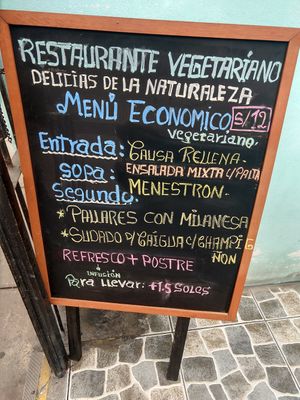 RESTAURANTE VEGETARIANO
DELICIAS DE LA NATURALEZA
MENÚ ECONOMICO S/12
vegetariano
Entrada: CAUSA RELLENA-
SOPA: ENSALADA MIXTA C/PALTA
Segundo MENESTRON-
*PALLARES CON MILANESA
*SUDADO C/CAIGUA C/CHAMPIG
ÑON
REFRESCO + POSTRE
INFUSIÓN
PARA LLEVAR: +1.5 SOLES